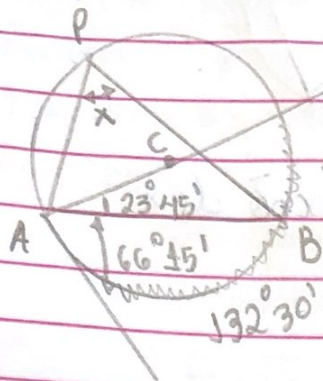 P
x
C
23°45'
A
B
66°15'
132°30'